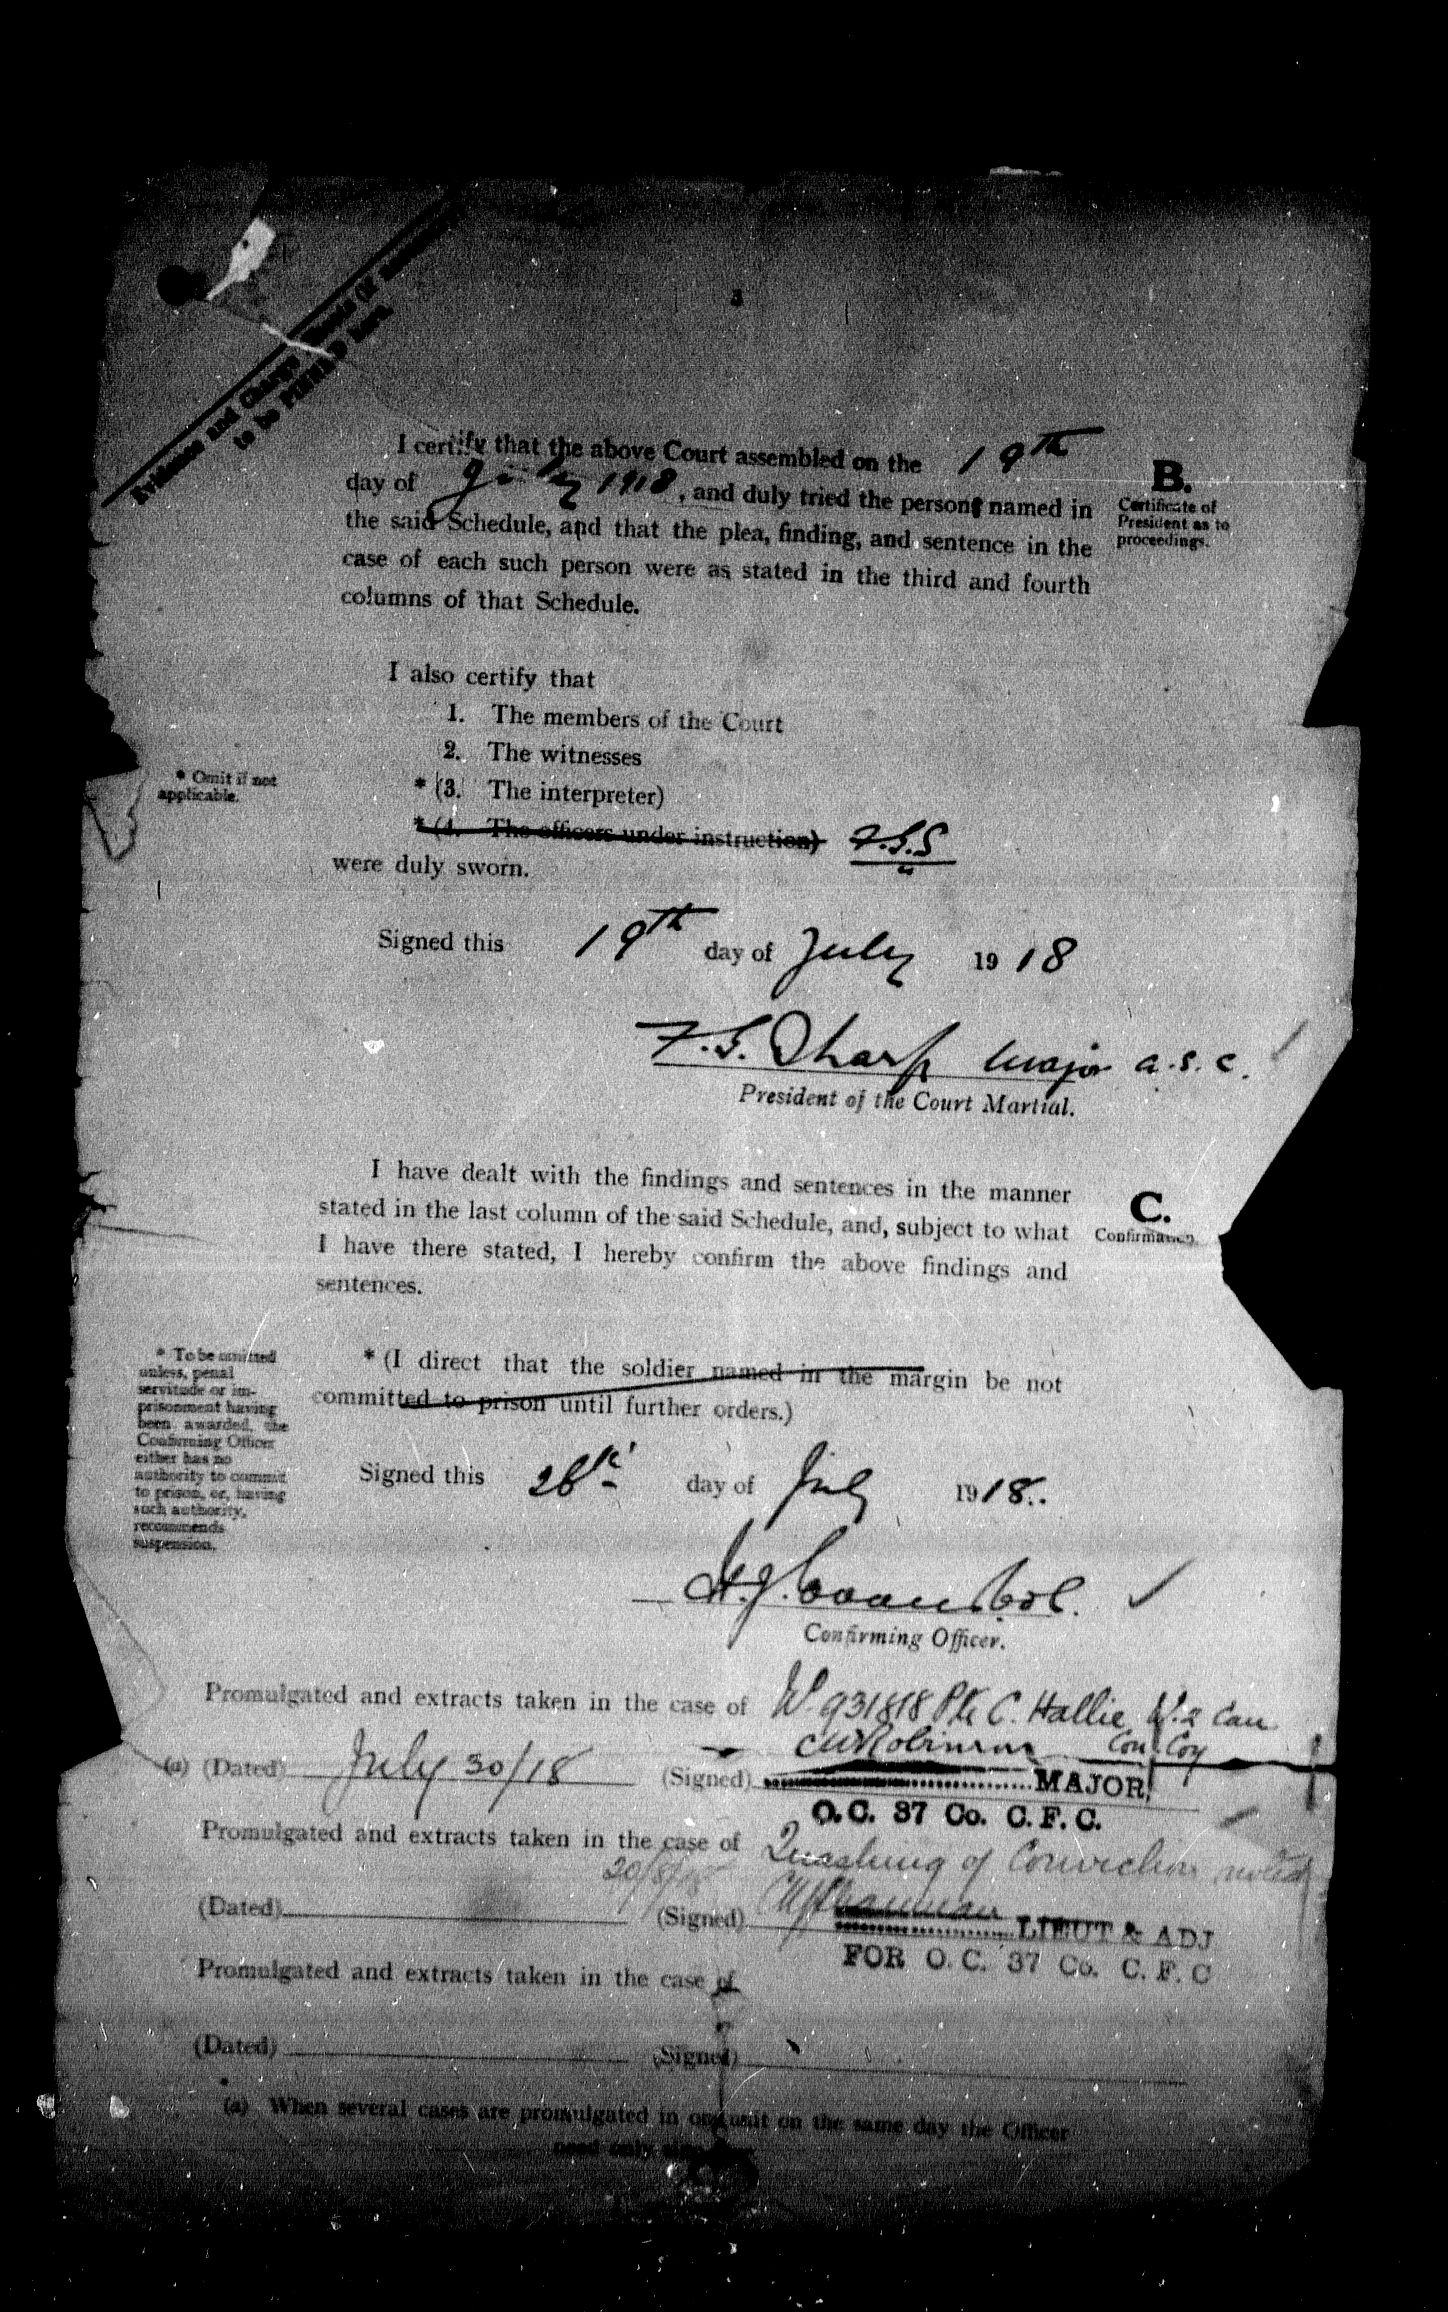 3
Evidence and Charge Sheets (if
to be PINNED here.
I certify that the above Court assembled on the 19th
day of July 1918, and duly tried the person named in
the said Schedule, and that the plea, finding, and sentence in the
case of each such person were as stated in the third and fourth
columns of that Schedule.
B.
Certificate of
President as to
proceedings.
I also certify that
1. The members of the Court
2. The witnesses
* (3. The interpreter)
* (4. The officers under instruction) F.G.S
were duly sworn.
* Omit if not
applicable.
Signed this 19th day of July 1918
F.G. Sharp Major A.S.C.
President of the Court Martial.
I have dealt with the findings and sentences in the manner
stated in the last column of the said Schedule, and, subject to what
I have there stated, I hereby confirm the above findings and
sentences.
C.
Confirmation.
* (I direct that the soldier named in the margin be not
committed to prison until further orders.)
* To be omitted
unless, penal
servitude or im-
prisonment having
been awarded, the
Confirming Officer
either has no
authority to commit
to prison, or, having
such authority,
recommends
suspension.
Signed this 28th day of July 1918.
Col.
Confirming Officer.
Promulgated and extracts taken in the case of 931818 Pte C. Hallie No. 2 Can
Con Coy
(a) (Dated) July 30/18 (Signed) Robinson MAJOR,
O.C. 37 Co. C.F.C.
Promulgated and extracts taken in the case of Quashing of Conviction noted
(Dated) 20/8/18 (Signed) LIEUT & ADJ
FOR O.C. 37 Co. C.F.C
Promulgated and extracts taken in the case of
(Dated) (Signed)
(a) When several cases are promulgated in one unit on the same day the Officer
need only sign